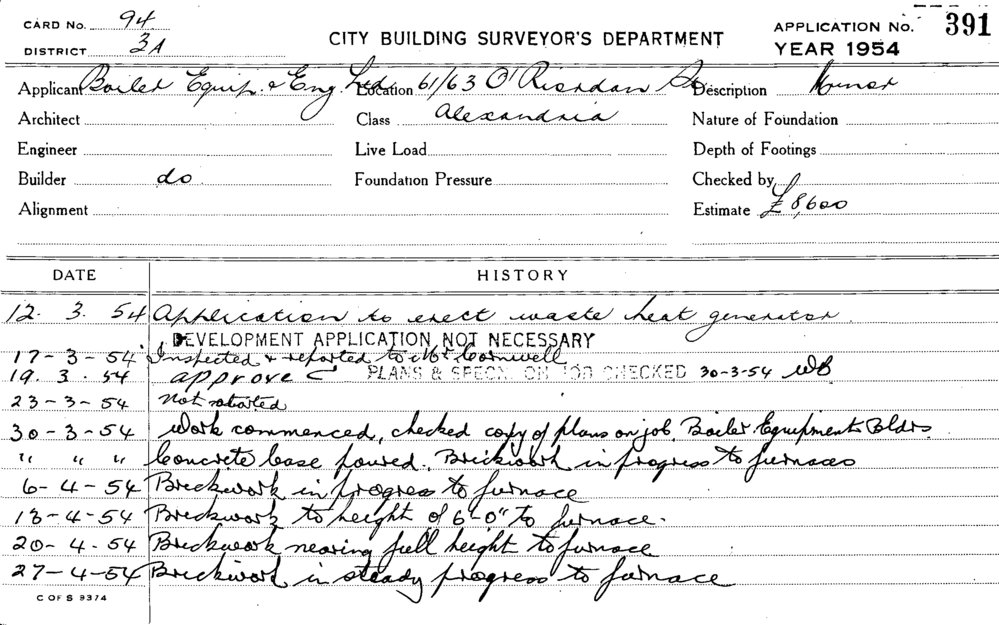 CARD No. 94
DISTRICT 3A
CITY BUILDING SURVEYOR'S DEPARTMENT
APPLICATION No. 391
YEAR 1954
Applicant Boiler Equip. & Eng. Ltd Location 61/63 O'Riordan St Description Minor
Architect Class Alexandria Nature of Foundation
Engineer Live Load Depth of Footings
Builder do Foundation Pressure Checked by
Alignment Estimate £8,600
DATE HISTORY
12. 3. 54 Application to erect waste heat generator.
DEVELOPMENT APPLICATION NOT NECESSARY
17-3-54 Inspected & reported to Mr Cornwell
19. 3. 54 approved PLANS & SPECN. ON JOB CHECKED 30-3-54 WB
23-3-54 Not started
30-3-54 Work commenced, checked copy of plans on job. Boiler Equipment Bldrs.
" " " Concrete base poured. Brickwork in progress to furnaces
6-4-54 Brickwork in progress to furnace
13-4-54 Brickwork to height of 6'-0" to furnace.
20-4-54 Brickwork nearing full height to furnace
27-4-54 Brickwork in steady progress to furnace
C OF S 9374